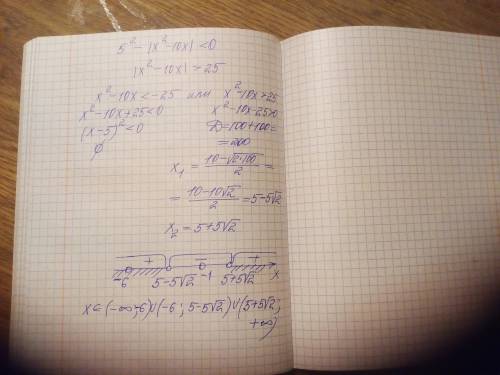 5² - |x² - 10x| < 0
|x² - 10x| > 25
x² - 10x < -25 или x² - 10x > 25
x² - 10x + 25 < 0 x² - 10x - 25 > 0
(x - 5)² < 0 D = 100 + 100 =
∅ = 200
x₁ = (10 - √(2·100))/2 =
= (10 - 10√2)/2 = 5 - 5√2
x₂ = 5 + 5√2
+ - +
-6 5 - 5√2 -1 5 + 5√2 x
x ∈ (-∞; 6) ∪ (-6; 5 - 5√2) ∪ (5 + 5√2;
+∞)